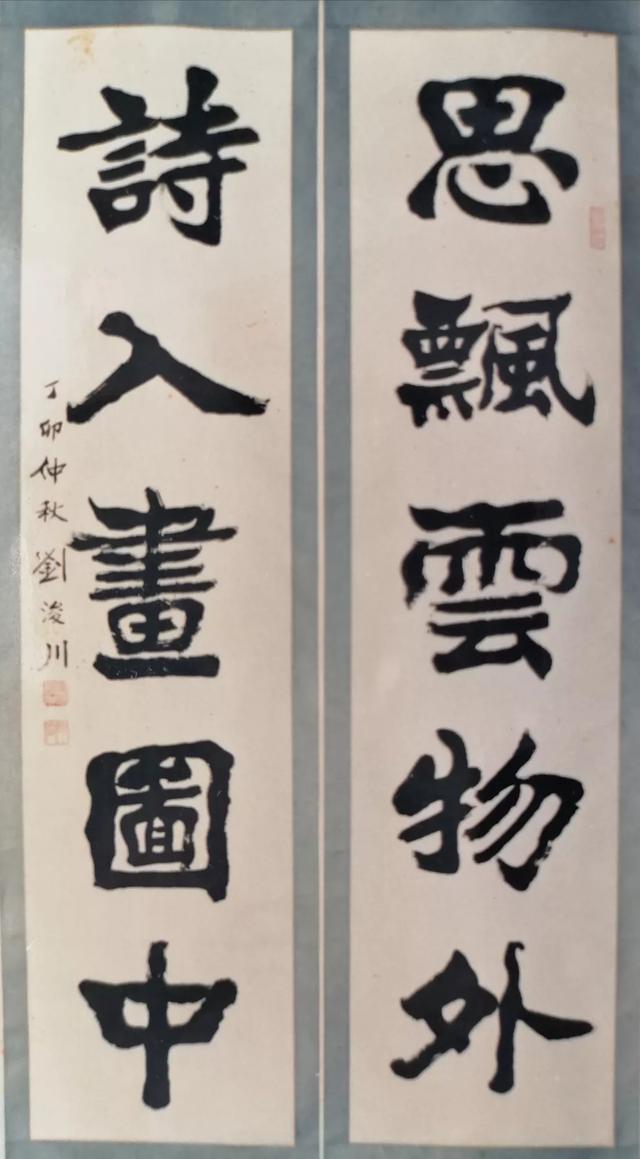 思飄雲物外
詩入畫圖中
丁卯仲秋劉浚川